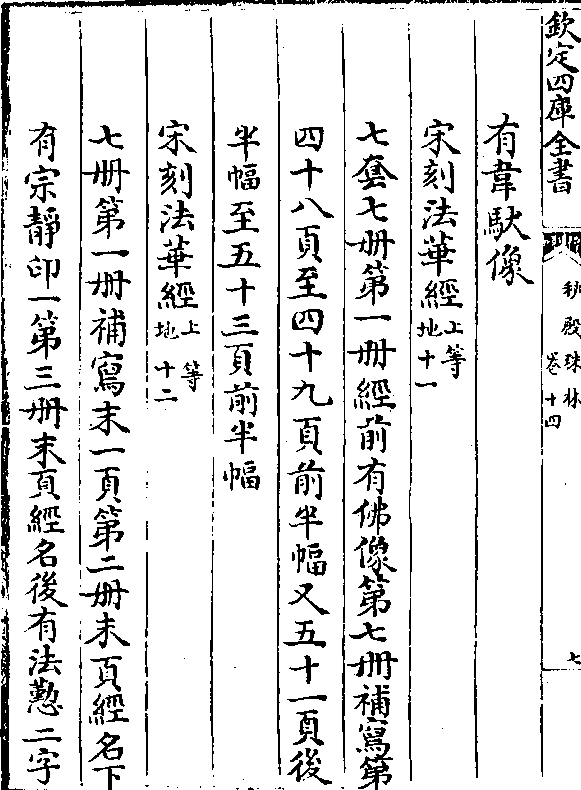 欽定四庫全書
秘殿珠林
卷十四
七
有韋馱像
宋刻法華經上等地十一
七套七册第一册經前有佛像第七册補寫第
四十八頁至四十九頁前半幅又五十一頁後
半幅至五十三頁前半幅
宋刻法華經上等地十二
七册第一册補寫末一頁第二册末頁經名下
有宗靜印一第三册末頁經名後有法懃二字